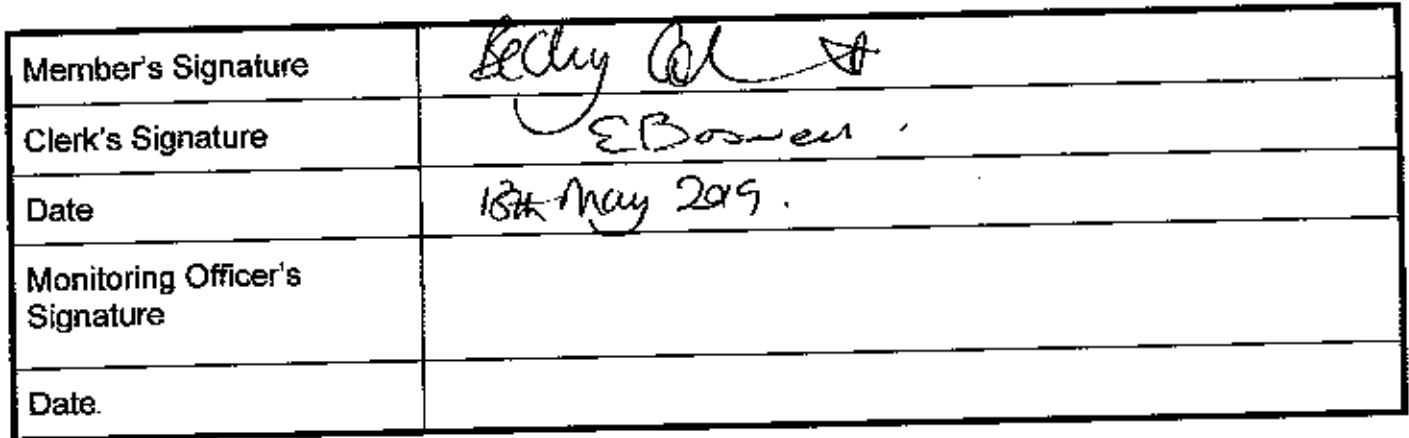 Member's Signature Becky
Clerk's Signature E Boswell
Date 18th May 2019.
Monitoring Officer's
Signature
Date.